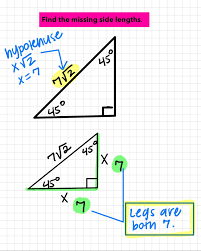 Find the missing side lengths.
hypotenuse
x√2
x = 7
7√2
45°
45°
7√2
45°
45°
x 7
x
7
Legs are
both 7.